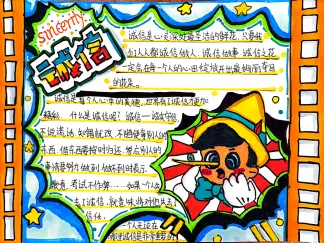 sincerity
诚信
诚信是心灵深处最圣洁的鲜花,只要我
们人人都诚信做人,诚信做事,诚信之花
一定在每一个人的心田绽放开出最绚丽夺目
的花朵。
诚信是每个人心中的美德,世界有了诚信才更加
精彩。什么是诚信呢?诚信
不说谎话,知错就改,不随便拿别人的
东西,借东西要按时归还,答应别人的
事情要努力做到,做不到时表示
歉意,考试不作弊……如果一个人
失去了诚信,就意味将对他失去了
信任。